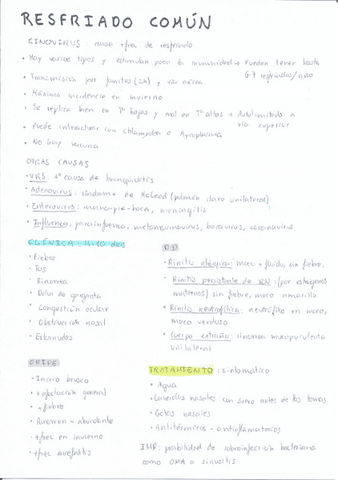 RESFRIADO COMÚN
RINOVIRUS: causa + frec de resfriado
• Hay varios tipos y estimulan poco la inmunidad → Pueden tener hasta
6-7 resfriados/año
• Transmisión por fómites (2h) y vía aérea
• Máxima incidencia en invierno
• Se replica bien en Tª bajas y mal en Tª altas → Autolimitado a
vía superior
• Puede interactuar con Chlamydia o Mycoplasma
• No hay vacuna
OTRAS CAUSAS
• VRS: 1ª causa de bronquiolitis
• Adenovirus: síndrome de McLeod (pulmón claro unilateral)
• Enterovirus: mano-pie-boca, meningitis
• Influenza, parainfluenza, metaneumovirus, bocavirus, coronavirus
CLÍNICA: días
• Fiebre
• Tos
• Rinorrea
• Dolor de garganta
• Congestión ocular
• Obstrucción nasal
• Estornudos
DD
• Rinitis alérgica: moco + fluido, sin fiebre.
• Rinitis persistente de RN: (por estrógenos
maternos) sin fiebre, moco amarillo
• Rinitis neutrofílica: neutrófilos en moco,
moco verdoso
• Cuerpo extraño: rinorrea mucopurulenta
unilateral
GRIPE
• Inicio brusco
• + afectación general
• + fiebre
• Rinorrea - abundante
• + frec en invierno
• + frec
TRATAMIENTO: sintomático
• Agua
• Lavados nasales con suero antes de las tomas
• Gotas nasales
• Antitérmicos - antiinflamatorios
IMP: posibilidad de sobreinfección bacteriana
como OMA o sinusitis